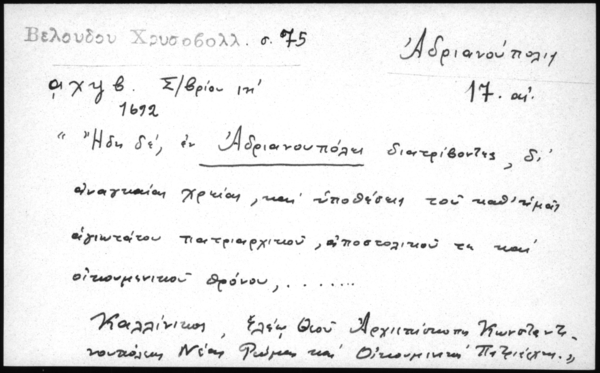 Βελουδου Χρυσοβολλ. σ. 75
Ἀδριανούπολις
αχϟβ. Σ/βρίου ιη'
17. αἰ.
1692
“ Ἤδη δέ, ἐν Ἀδριανουπόλει διατρίβοντες, δι'
ἀναγκαίας χρείας, καὶ ὑποθέσεις τοῦ καθ' ἡμᾶς
ἁγιωτάτου πατριαρχικοῦ, ἀποστολικοῦ τε καὶ
οἰκουμενικοῦ θρόνου, . . . . . . .
Καλλίνικος, ἐλέῳ Θεοῦ Ἀρχιεπίσκοπος Κωνσταντι-
νουπόλεως Νέας Ρώμης καὶ Οἰκουμενικὸς Πατριάρχης. „